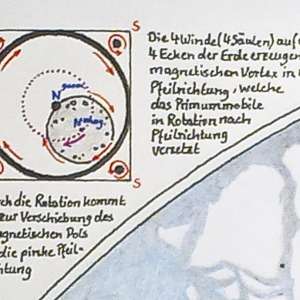 S
Die 4 Winde (4 Säulen) auf
4 Ecken der Erde erzeugen
magnetischen Vortex in
Pfeilrichtung, welche
das Primum mobile
in Rotation nach
Pfeilrichtung
versetzt
N geogr.
N mag.
S
S
die Rotation kommt
zur Verschiebung des
gnetischen Pols
die pinke Pfeil-
chtung